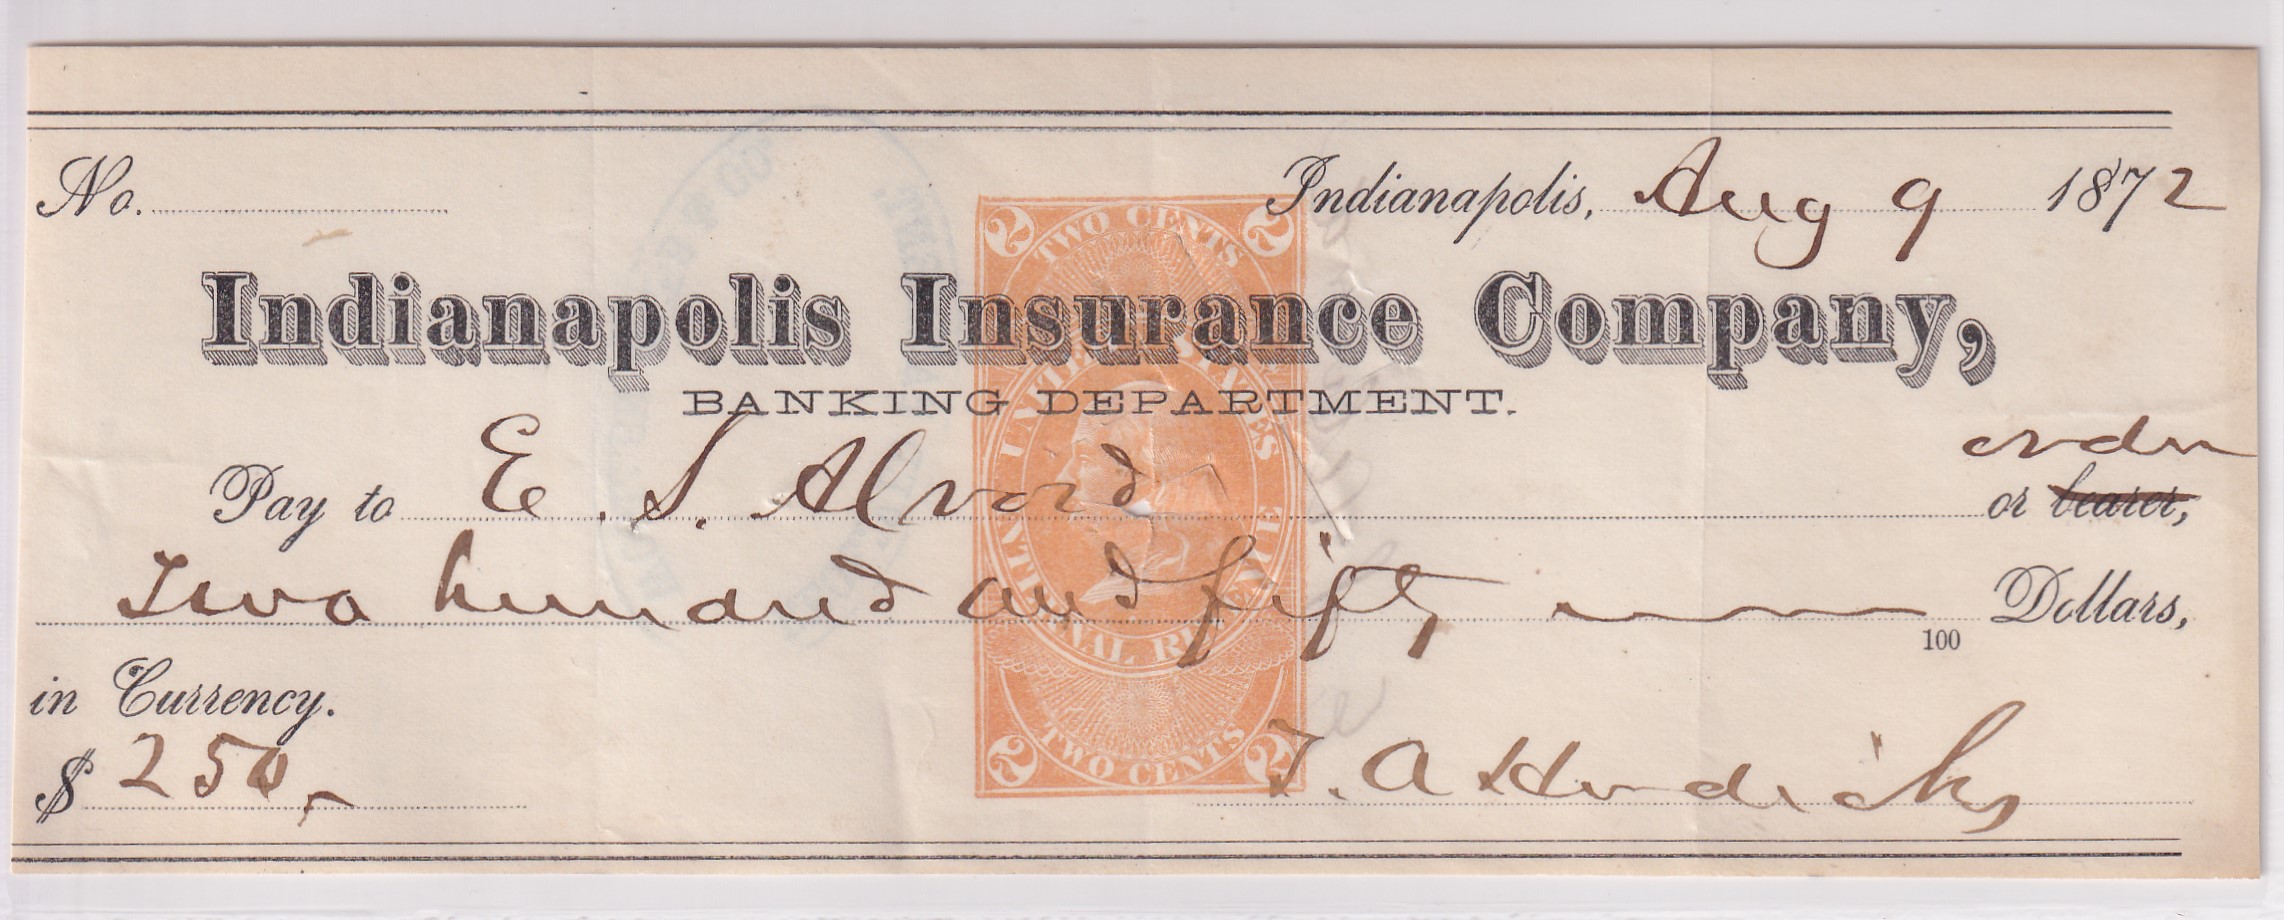 No.
Indianapolis, Aug 9 1872
2 TWO CENTS 2
Indianapolis Insurance Company,
BANKING DEPARTMENT.
UNITED STATES
INTERNAL REVENUE
order
Pay to E. S. Alvord or bearer,
Two hundred and fifty 100 Dollars,
in Currency.
$ 250,-
T. A Hendricks
2 TWO CENTS 2